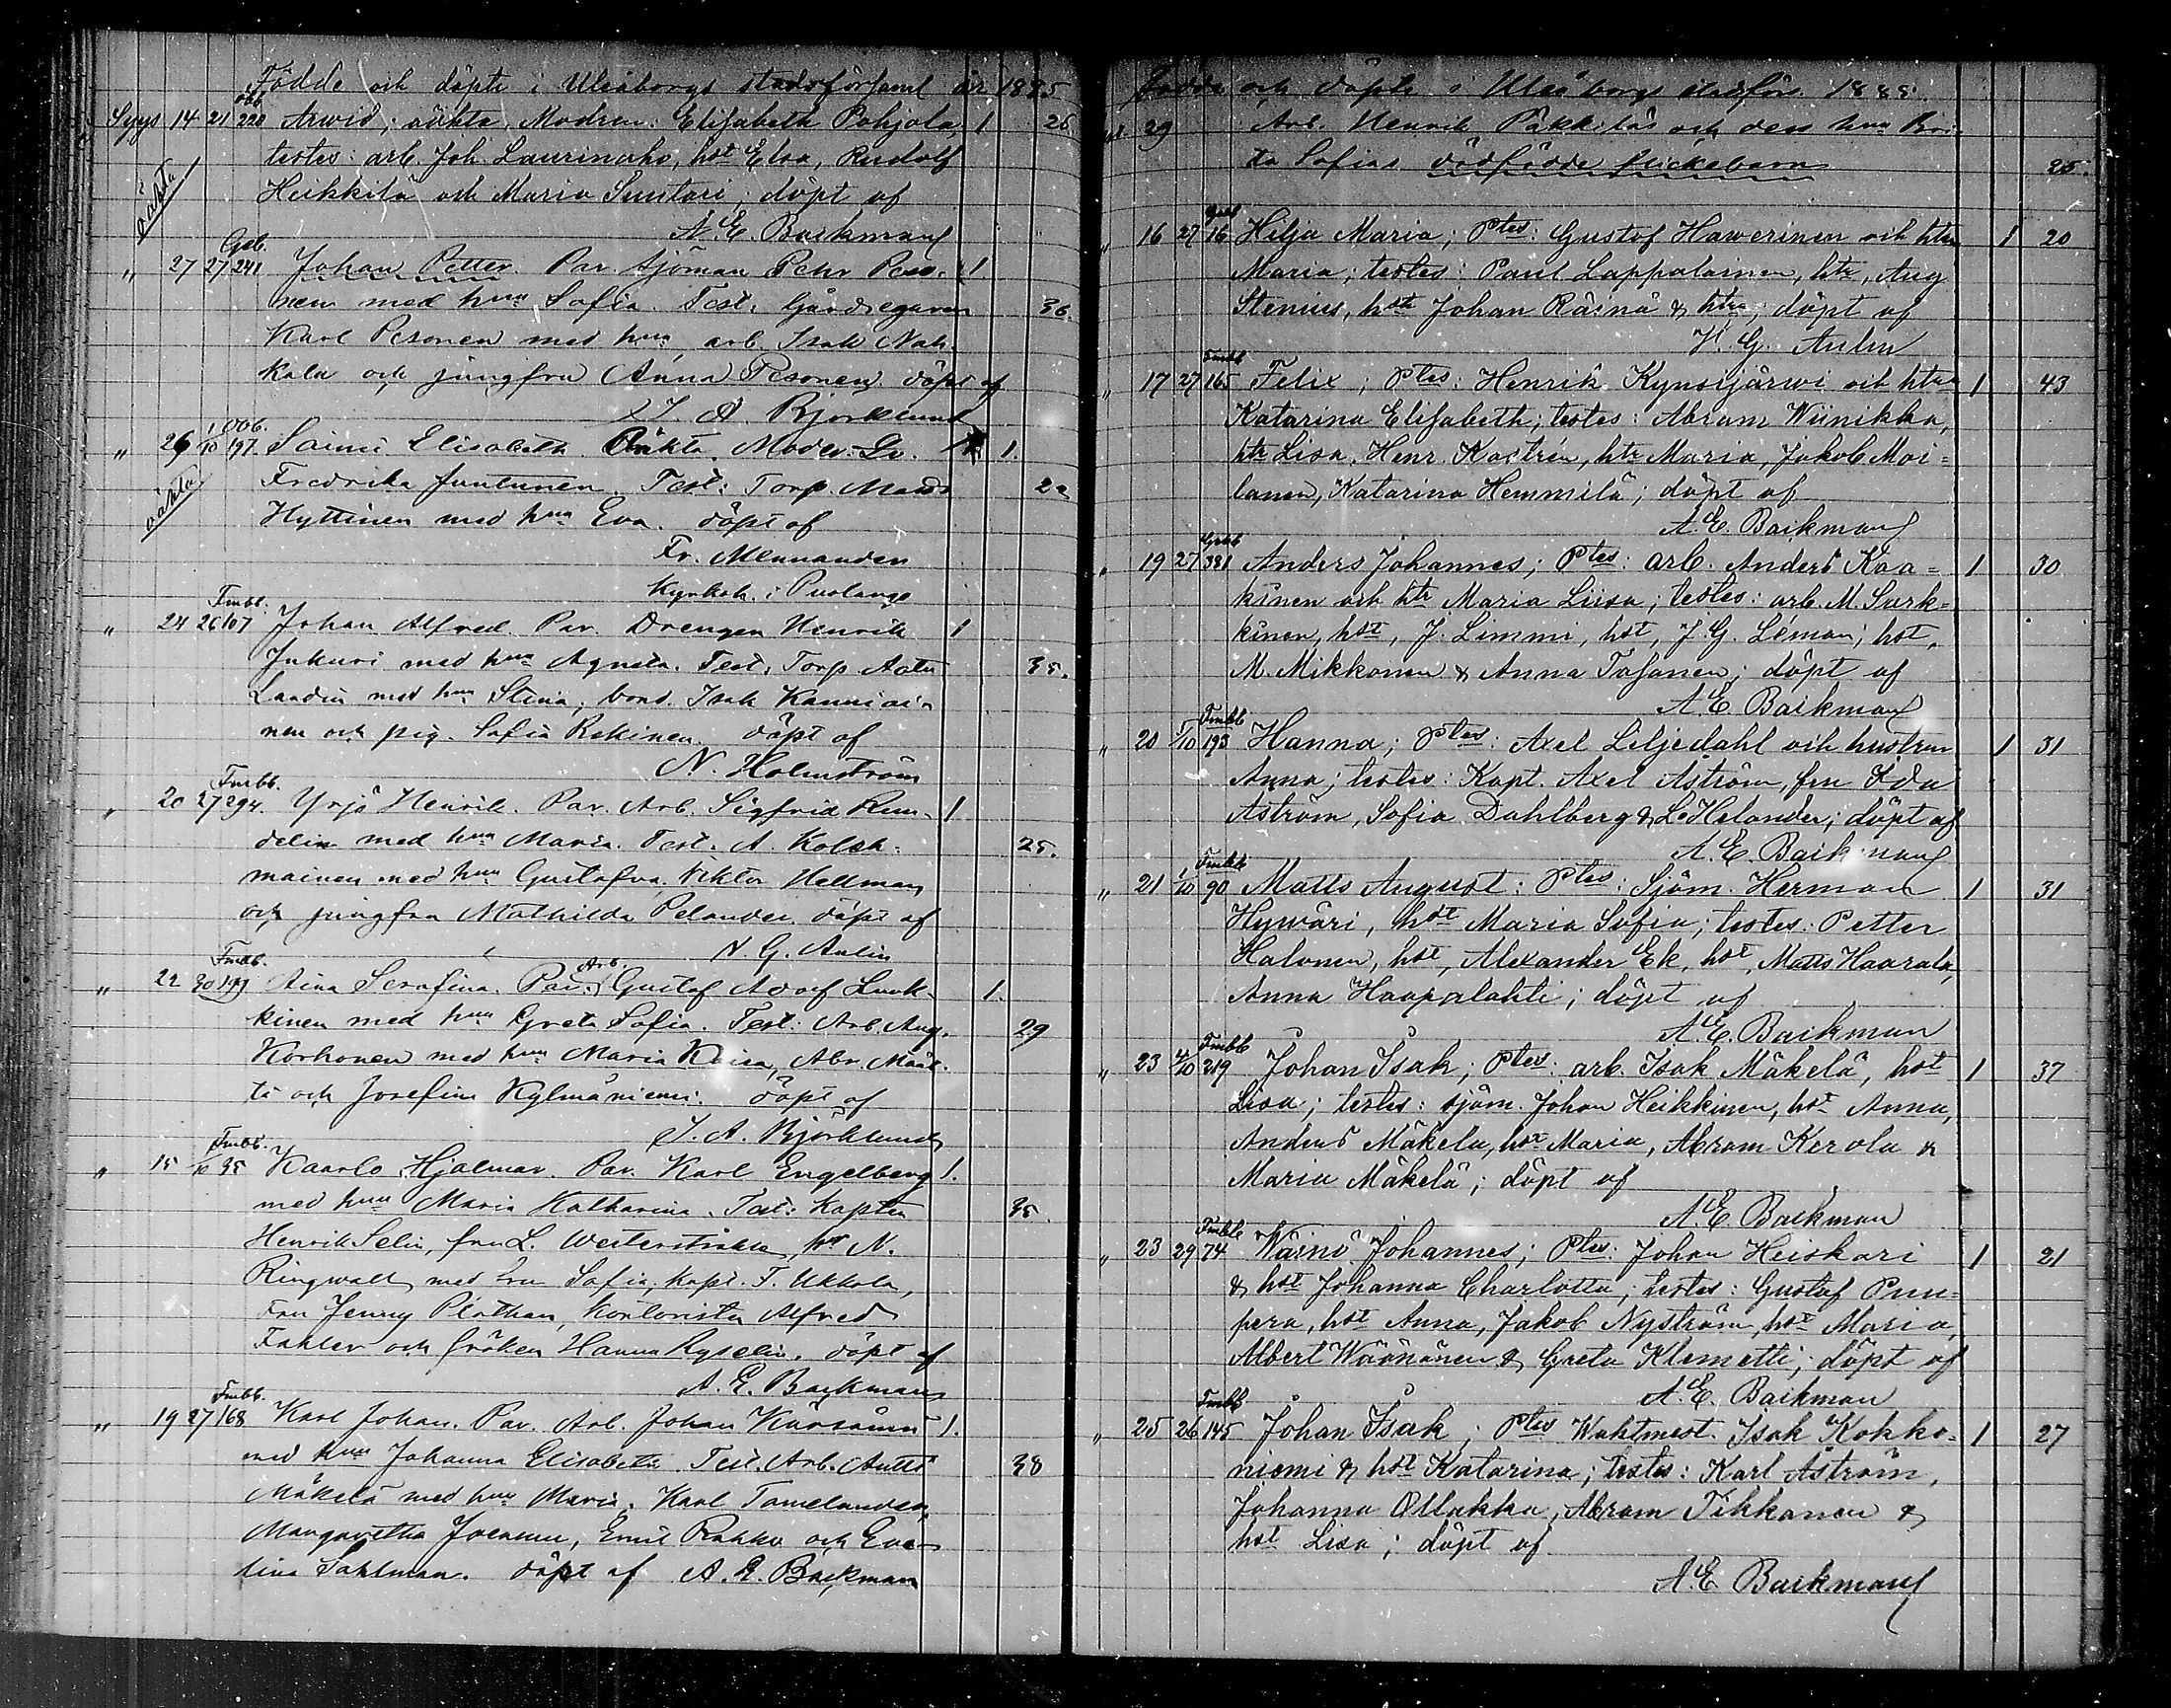 Födde och döpte i Uleåborgs stadsförsaml år 1885
Syys 14 21 220 Arwid; oäkta, Modren: Elisabeth Pohjola 1 26
oäkta
testes: arb. Joh. Laurinaho, hst Elsa, Rudolf
Heikkilä och Maria Suutari; döpt af
A. E. Backman
Gsb.
" 27 27 241 Johan Petter. Par. Sjöman Pehr Peso- 1
nen med hun Sofia. Test. Gårdsegaren 36.
Karl Pesonen med hun arb. Isak
kala och jungfru Anna Pesonen döpt af
J. A. Björklund
" 26 1/10 197. Saimi Elisabeth Oäkta. Moder: 1.
oäkta
Fredrika Juntunen Test: Torp. Mats 22
Hyttinen med hun Eva. döpt af
Fr. Mennander
Kyrkoh. i Puolango
Fmbb.
" 24 26 107 Johan Alfred. Par. Drengen Henrik 1
Jukuri med hun Agneta. Test. Torp. 35.
med hun Stina, bond. Isak Kanniai-
nen och pig. Sofia döpt af
N. Holmström
Fmbb.
" 20 27 294. Yrjö Henrik. Par. Arb. Sigfrid Run- 1
delin med hun Maria. Test. A. Koleh- 25.
mainen med hun Gustafva, Viktor Hellman
och jungfru Mathilda Pelander döpt af
N. G. Aulin
Fmbb.
" 22 30 199 Aina Serafina. Par. Arb. Gustaf Adolf Luuk- 1.
kinen med hun Greta Sofia. Test: Arb. Aug. 29
Korhonen med hun Maria Kaisa, Abr. Määt-
tä och Josefina Kylmäniemi. döpt af
J. A. Björklund
Fmbb.
" 15 /10 35 Kaarlo Hjalmar. Par. Karl Engelberg 1.
med hun Maria Katharina. Test: Kapten 35.
Henrik Selin, fru L. Westerstråhle, hr N.
Ringwall med fru Sofia, Kapt. F. Ukkola,
Fru Jenny Plathan, Kontorista Alfred
Fahler och fröken Hanna Ryselin. döpt af
A. E. Backman
Fmbb.
" 19 27 168 Karl Johan. Par. Arb. Johan Kärsämä 1.
med hun Johanna Elisabeth. Test. Arb. Antti 38
Mäkelä med hun Maria. Karl Tamelander,
Margaretha Emil Rahko och Eve-
lina Sahlman. döpt af A. E. Backman
Födde och döpte i Uleåborgs stadsförs 1885.
29 Arb. Henrik Päkkiläs och dess hua Bri-
ta Sofias dödfödde flickebarn 25.
" 16 27 16 Hilja Maria; Ptes: Gustaf Hawerinen och htru 1 20
Maria; testes: Paul Lappalainen, htr, Aug
Stenius, hst Johan Räinä & htru; döpt af
N. G. Aulin
Fmbb
" 17 27 165 Felix; Ptes: Henrik Kynsijärwi och htru 1 43
Katarina Elisabeth; testes: Abram Wiinikka,
htr Lisa, Henr. Kastrén, htr Maria, Jakob Moi=
lanen, Katarina Hemmilä; döpt af
A. E. Backman
" 19 27 381 Anders Johannes; Ptes: arb. Anders Kaa= 1 30
kinen och htr Maria Liisa; testes: arb. M. Surk=
kinen, hst, J. Limmi, hst, J. G. Léman; hst,
M. Mikkonen & Anna Tafanen; döpt af
A. E. Backman
Fmbb
" 20 /10 193 Hanna; Ptes: Axel Liljedahl och hustrun 1 31
Anna; testes: Kapt. Axel Åström, fru Ida
Åström, Sofia Dahlberg & L. Helander; döpt af
A. E. Backman
Fmbb
" 21 1/10 90 Matts August: Ptes: Sjöm. Herman 1 31
Hywäri, hst Maria Sofia; testes: Petter
Halonen, hst, Alexander Ek, hst, Matts Haarala,
Anna Haapalahti; döpt af
A. E. Backman
Fmbb
" 23 4/10 219 Johan Isak; Ptes: arb. Isak Mäkelä, hst 1 37
Lisa; testes: sjöm. Johan Heikkinen, hst Anna,
Anders Mäkelä, hst Maria, Abram Kerola &
Maria Mäkelä; döpt af
A. E. Backman
Fmbb
" 23 29 74 Wäinö Johannes; Ptes: Johan Heiskari 1 21
& hst Johanna Charlotta; testes: Gustaf Puu-
pera, hst Anna, Jakob Nyström, hst Maria,
Albert Wäänänen & Greta Klemetti; döpt af
A. E. Backman
Fmbb
" 25 26 145 Johan Isak; Ptes Wahtmest. Isak Kokko- 1 27
niemi & hst Katarina; testes: Karl Åström,
Johanna Ollakka, Abram Tikkanen &
hst Lisa; döpt af
A. E. Backman